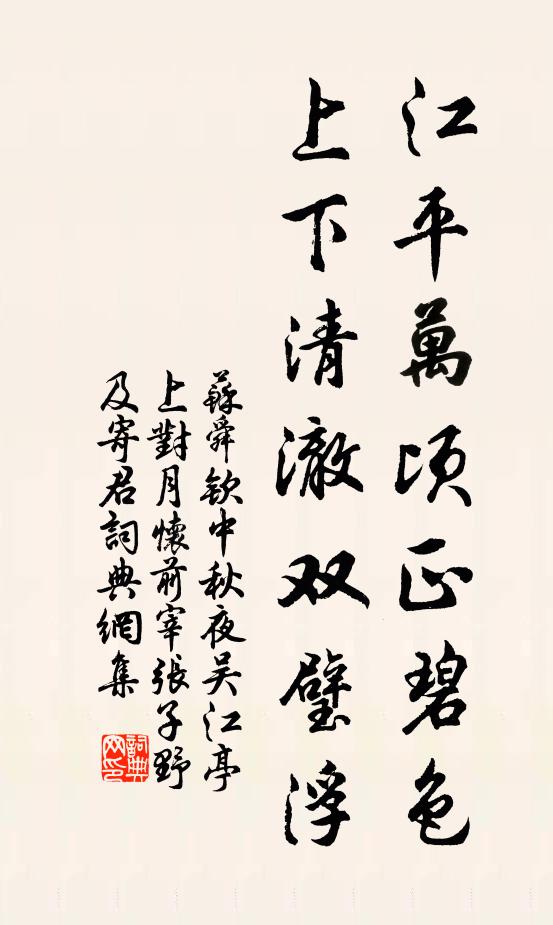 江平萬頃正碧色
上下清澈双璧浮
蘇舜欽中秋夜吴江亭
上對月懷前宰張子野
及寄君詞典網集
詞典
网印